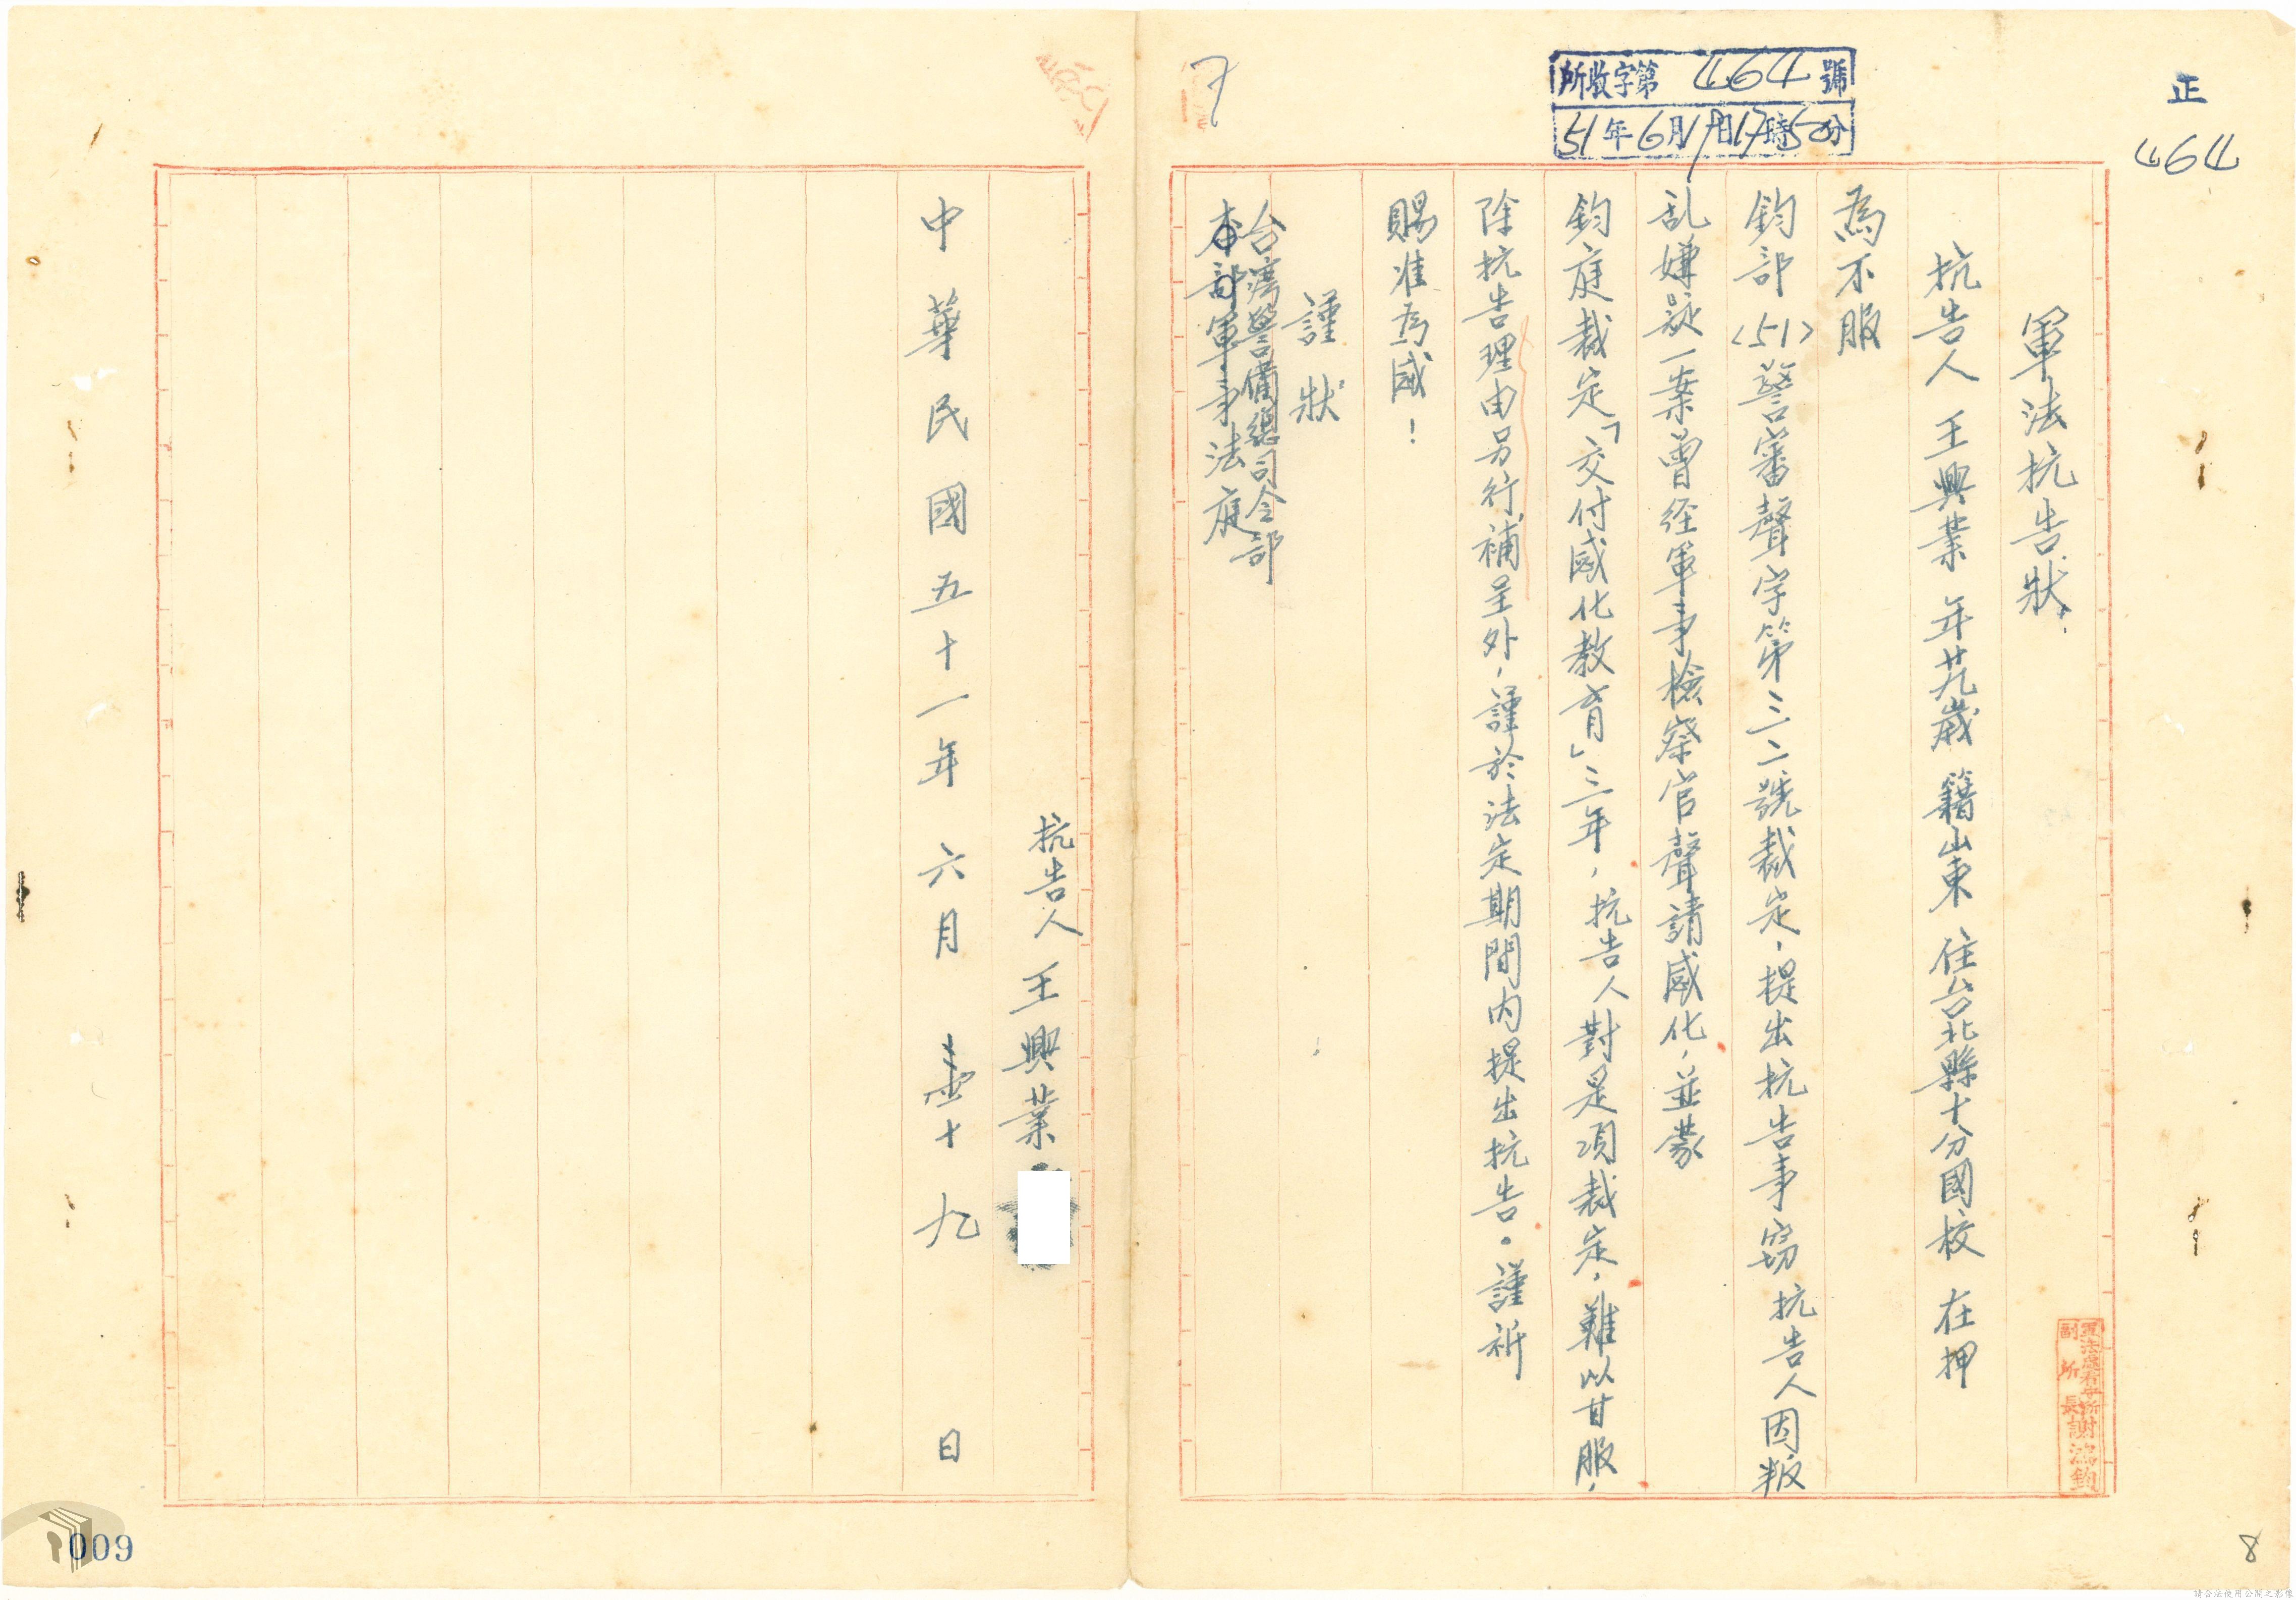 正
464
所收字第464號
51年6月19日17時50分
軍法抗告狀
抗告人 王興業 年廿九歲 籍山東 住台北縣十分國校 在押
為不服
鈞部(51)警審聲字第三二號裁定，提出抗告事竊抗告人因叛
乱嫌疑一案曾經軍事檢察官聲請感化，並蒙
鈞庭裁定「交付感化教育」三年，抗告人對是項裁定，難以甘服，
除抗告理由另行補呈外，謹於法定期間內提出抗告。謹祈
賜准為感！
謹狀
台灣警備總司令部
本部軍事法庭
軍法處看守所
副所長謝鴻鈞
7
抗告人 王興業
中華民國五十一年 六月 壹十九 日
009
8
請合法使用公開之影像